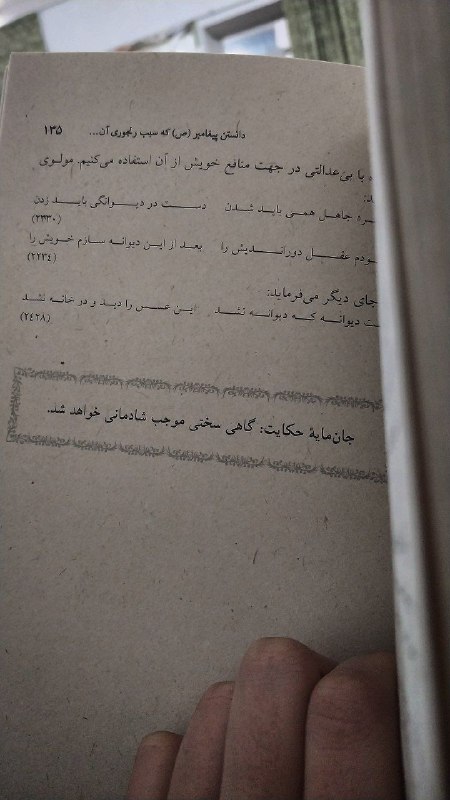 دانستن پیغامبر (ص) که سبب رنجوری آن... ۱۳۵
با بی‌عدالتی در جهت منافع خویش از آن استفاده می‌کنیم. مولوی
جاهل همی باید شدن دست در دیوانگی باید زدن
(۲۳۳۰)
عقل دوراندیش را بعد از این دیوانه سازم خویش را
(۲۲۳٤)
جای دیگر می‌فرماید:
دیوانه که دیوانه نشد این عسس را دید و در خانه نشد
(۲٤۲۸)
جان‌مایهٔ حکایت: گاهی سختی موجب شادمانی خواهد شد.